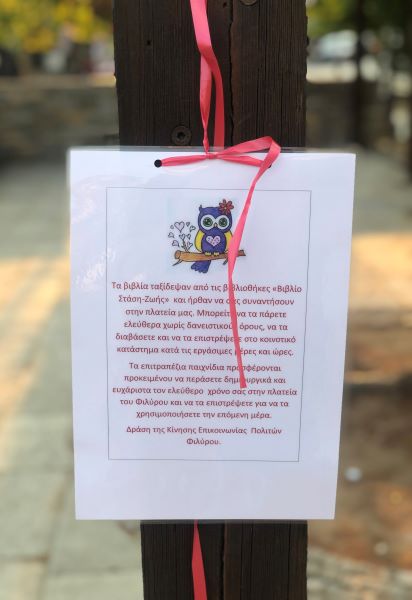 Τα βιβλία ταξίδεψαν από τις βιβλιοθήκες «Βιβλίο
Στάση-Ζωής» και ήρθαν να σας συναντήσουν
στην πλατεία μας. Μπορείτε να τα πάρετε
ελεύθερα χωρίς δανειστικούς όρους, να τα
διαβάσετε και να τα επιστρέψετε στο κοινοτικό
κατάστημα κατά τις εργάσιμες μέρες και ώρες.
Τα επιτραπέζια παιχνίδια προσφέρονται
προκειμένου να περάσετε δημιουργικά και
ευχάριστα τον ελεύθερο χρόνο σας στην πλατεία
του Φιλύρου και να τα επιστρέψετε για να τα
χρησιμοποιήσετε την επόμενη μέρα.
Δράση της Κίνησης Επικοινωνίας Πολιτών
Φιλύρου.